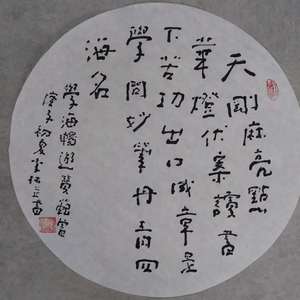 天剛麻亮點
華燈伏案讀書
下苦功出口成章是
學問妙筆丹青四
海名
學海暢遊贊
庚子初夏 書